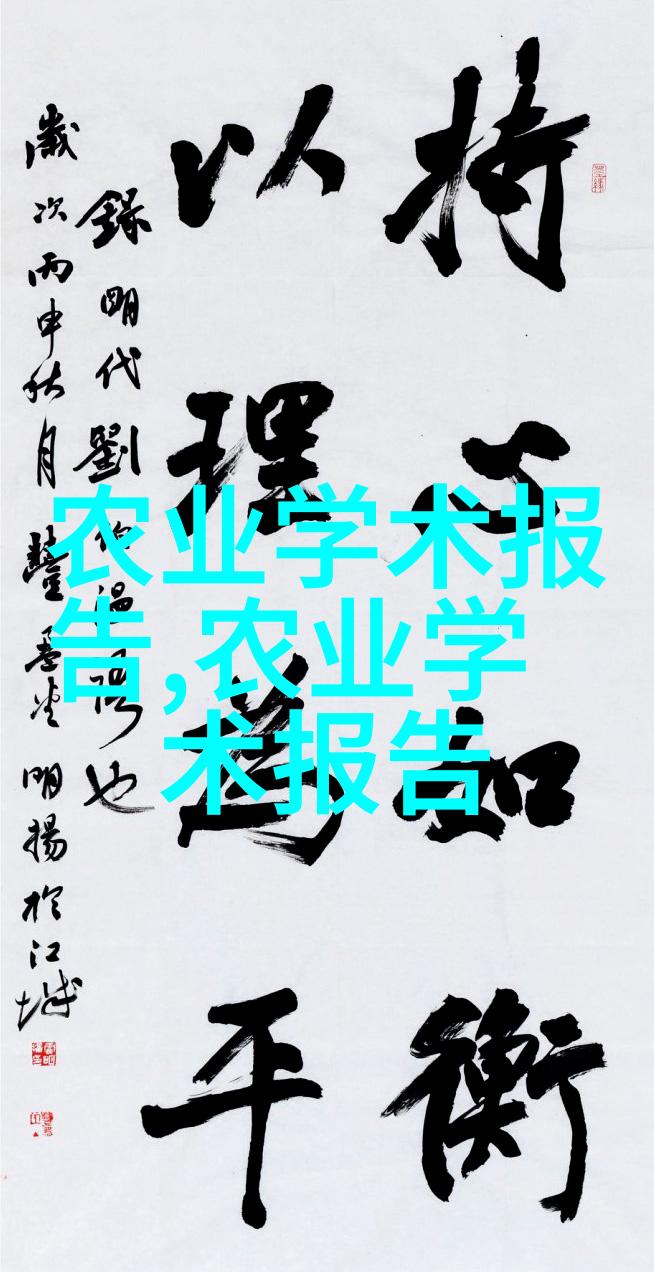 持心如衡
以理為平
錄明代劉伯温語也
歲次丙申秋月
明揚於江城
农业学术报
告,农业学
术报告